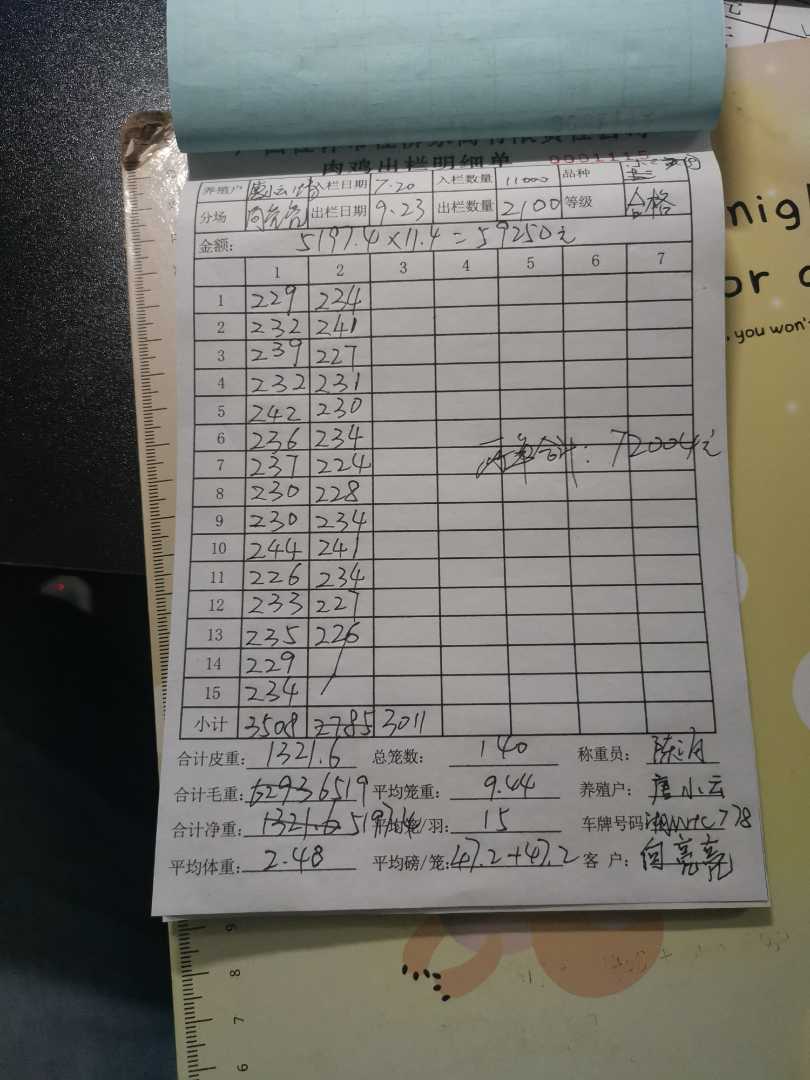 肉鸡出栏明细单 0001115
养殖户 入栏日期 7.20 入栏数量 11000 品种
分场 向亮亮 出栏日期 9.23 出栏数量 2100 等级 合格
金额: 5197.4×11.4=59250元
1 2 3 4 5 6 7
1 229 234
2 232 241
3 239 227
4 232 231
5 242 230
6 236 234
两单合计: 72004元
7 237 224
8 230 228
9 230 234
10 244 241
11 226 234
12 233 227
13 235 226
14 229
15 234
小计 3508 2785 3011
合计皮重: 1321.6 总笼数: 140 称重员:
合计毛重: 6519 平均笼重: 9.44 养殖户: 唐小云
合计净重: 1321.6 5197.4 /羽: 15 车牌号码
平均体重: 2.48 平均磅/笼: 47.2+47.2 客 户: 向亮亮
nigh
or
, you won't
9
8
7
6